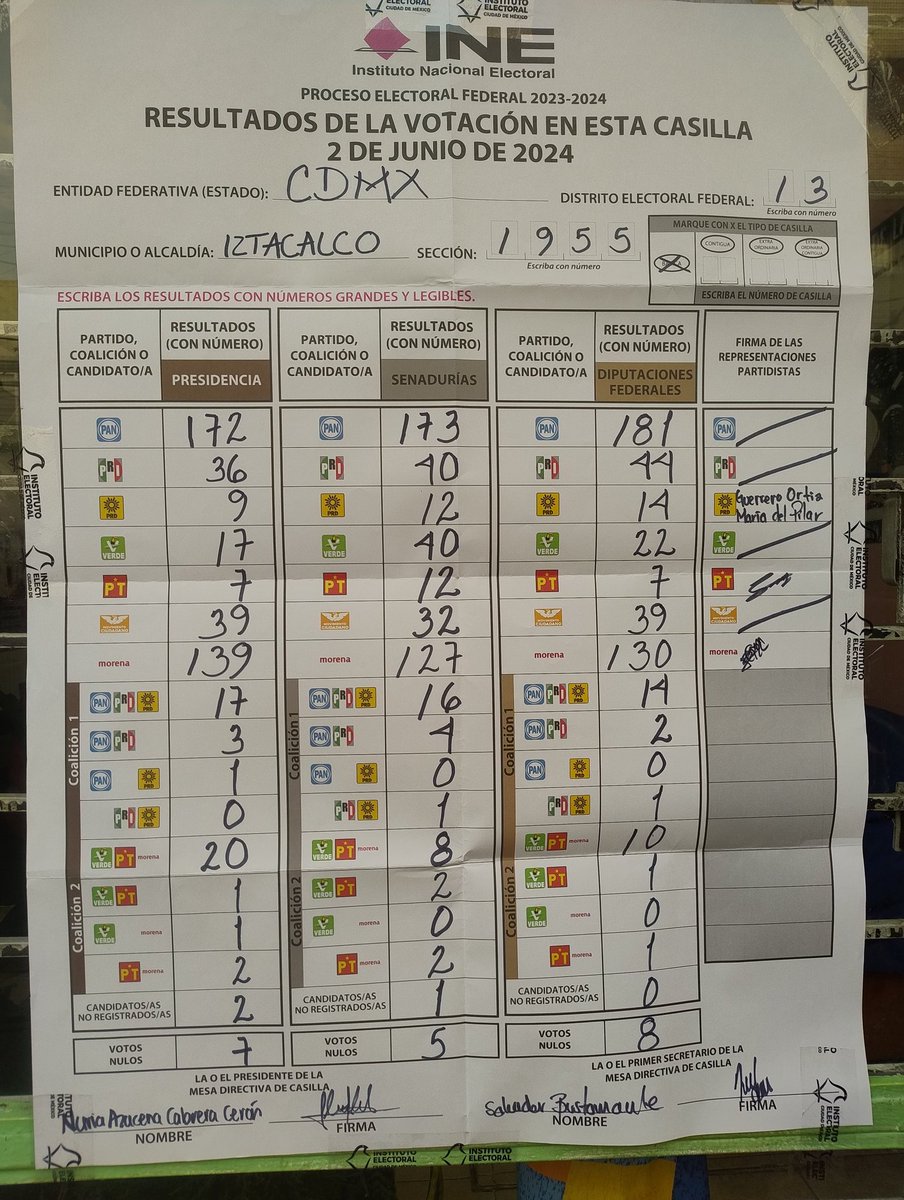 INSTITUTO ELECTORAL CIUDAD DE MÉXICO
INSTITUTO ELECTORAL CIUDAD DE MÉXICO
INE
Instituto Nacional Electoral
PROCESO ELECTORAL FEDERAL 2023-2024
RESULTADOS DE LA VOTACIÓN EN ESTA CASILLA
2 DE JUNIO DE 2024
ENTIDAD FEDERATIVA (ESTADO): CDMX DISTRITO ELECTORAL FEDERAL: 1 3
Escriba con número
MUNICIPIO O ALCALDÍA: IZTACALCO SECCIÓN: 1 9 5 5
Escriba con número
MARQUE CON X EL TIPO DE CASILLA
CONTIGUA EXTRA ORDINARIA EXTRA ORDINARIA CONTIGUA
ESCRIBA EL NÚMERO DE CASILLA
ESCRIBA LOS RESULTADOS CON NÚMEROS GRANDES Y LEGIBLES.
PARTIDO, COALICIÓN O CANDIDATO/A RESULTADOS (CON NÚMERO) PRESIDENCIA PARTIDO, COALICIÓN O CANDIDATO/A RESULTADOS (CON NÚMERO) SENADURÍAS PARTIDO, COALICIÓN O CANDIDATO/A RESULTADOS (CON NÚMERO) DIPUTACIONES FEDERALES FIRMA DE LAS REPRESENTACIONES PARTIDISTAS
PAN 172 PAN 173 PAN 181 PAN
PRD 36 PRD 40 PRD 44 PRD
PRD 9 PRD 12 PRD 14 PRD Guerrero Ortiz María del Pilar
VERDE 17 VERDE 40 VERDE 22 VERDE
PT 7 PT 12 PT 7 PT
MOVIMIENTO CIUDADANO 39 MOVIMIENTO CIUDADANO 32 MOVIMIENTO CIUDADANO 39
morena 139 morena 127 morena 130 morena
Coalición 1 PAN PRD PRD 17 Coalición 1 PAN PRD PRD 16 Coalición 1 PAN PRD PRD 14
PAN PRD 3 PAN PRD 4 PAN PRD 2
PAN PRD 1 PAN PRD 0 PAN PRD 0
PRD PRD 0 PRD PRD 1 PRD PRD 1
Coalición 2 VERDE PT morena 20 Coalición 2 VERDE PT morena 8 Coalición 2 VERDE PT morena 10
VERDE PT 1 VERDE PT 2 VERDE PT 1
VERDE morena 1 VERDE morena 0 VERDE morena 0
PT morena 2 PT morena 2 PT morena 1
CANDIDATOS/AS NO REGISTRADOS/AS 2 CANDIDATOS/AS NO REGISTRADOS/AS 1 CANDIDATOS/AS NO REGISTRADOS/AS 0
VOTOS NULOS 7 VOTOS NULOS 5 VOTOS NULOS 8
LA O EL PRESIDENTE DE LA MESA DIRECTIVA DE CASILLA LA O EL PRIMER SECRETARIO DE LA MESA DIRECTIVA DE CASILLA
Azucena Cabrera Cerón Salvador Bustamante
NOMBRE FIRMA NOMBRE FIRMA
INSTITUTO ELECTORAL INSTITUTO ELECTORAL